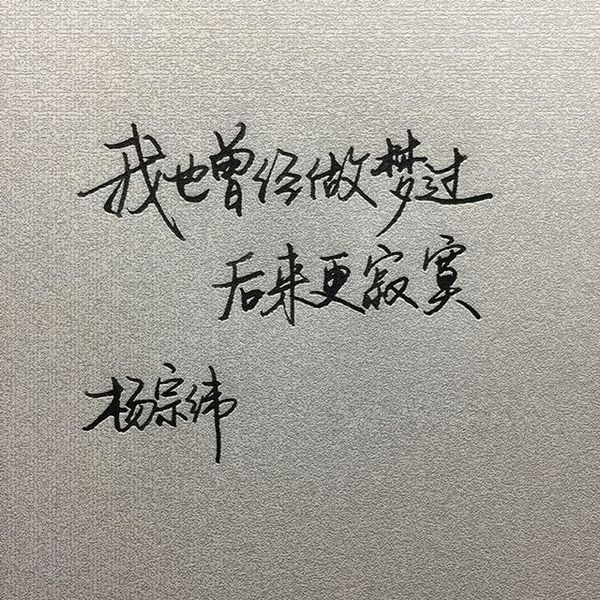 我也曾经做梦过
后来更寂寞
杨宗纬